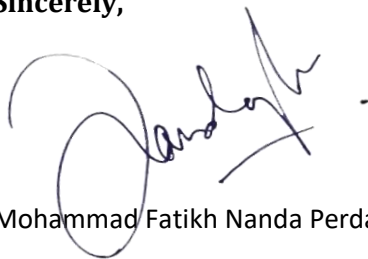 Sincerely,
Mohammad Fatikh Nanda Perda